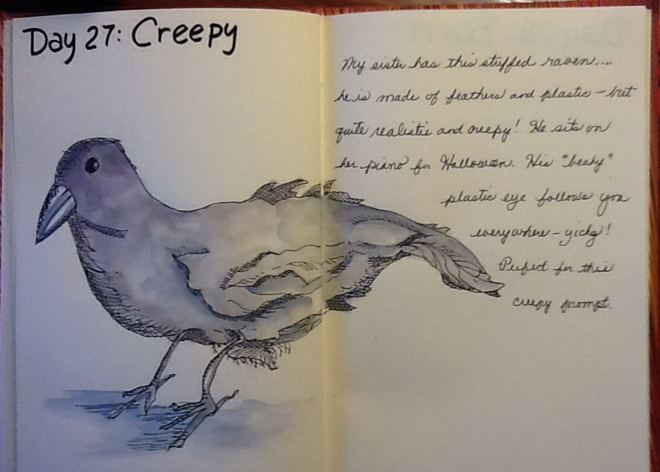 Day 27: Creepy
My sister has this stuffed raven...
he is made of feathers and plastic - but
quite realistic and creepy! He sits on
her piano for Halloween. His "beady"
plastic eye follows you
everywhere - yichs!
Perfect for this
creepy prompt.